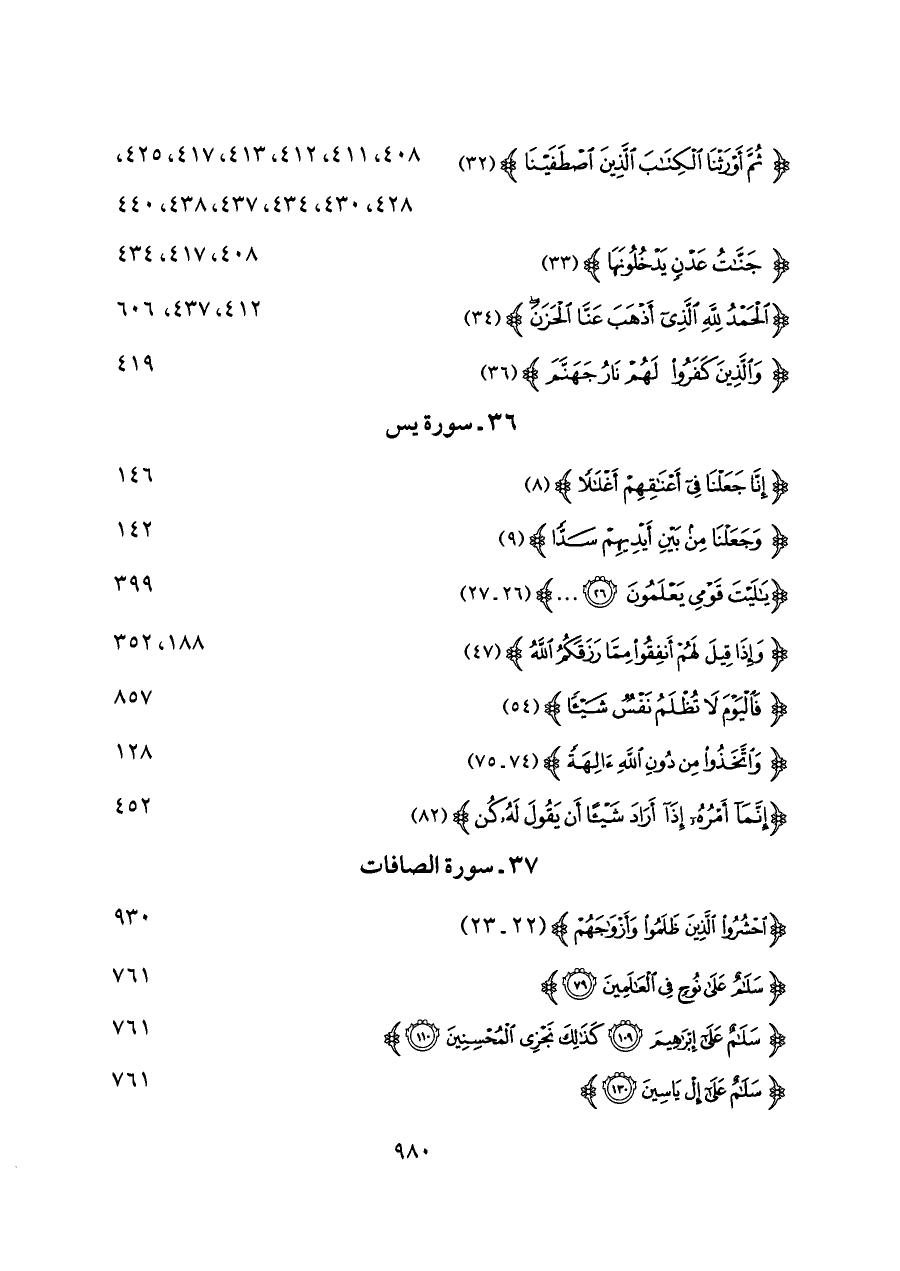 ﴿ ثُمَّ أَوْرَثْنَا ٱلْكِتَٰبَ ٱلَّذِينَ ٱصْطَفَيْنَا ﴾ (٣٢) ٤٠٨، ٤١١، ٤١٢، ٤١٣، ٤١٧، ٤٢٥،
٤٢٨، ٤٣٠، ٤٣٤، ٤٣٧، ٤٣٨، ٤٤٠
﴿ جَنَّٰتُ عَدْنٍ يَدْخُلُونَهَا ﴾ (٣٣) ٤٠٨، ٤١٧، ٤٣٤
﴿ٱلْحَمْدُ لِلَّهِ ٱلَّذِىٓ أَذْهَبَ عَنَّا ٱلْحَزَنَۖ ﴾ (٣٤) ٤١٢، ٤٣٧، ٦٠٦
﴿ وَٱلَّذِينَ كَفَرُوا۟ لَهُمْ نَارُ جَهَنَّمَ ﴾ (٣٦) ٤١٩
٣٦ ـ سورة يس
﴿ إِنَّا جَعَلْنَا فِىٓ أَعْنَٰقِهِمْ أَغْلَٰلًا ﴾ (٨) ١٤٦
﴿ وَجَعَلْنَا مِنۢ بَيْنِ أَيْدِيهِمْ سَدًّا ﴾ (٩) ١٤٢
﴿يَٰلَيْتَ قَوْمِى يَعْلَمُونَ ٢٦ ... ﴾ (٢٦ ـ ٢٧) ٣٩٩
﴿ وَإِذَا قِيلَ لَهُمْ أَنفِقُوا۟ مِمَّا رَزَقَكُمُ ٱللَّهُ ﴾ (٤٧) ١٨٨، ٣٥٢
﴿ فَٱلْيَوْمَ لَا تُظْلَمُ نَفْسٌ شَيْـًٔا ﴾ (٥٤) ٨٥٧
﴿ وَٱتَّخَذُوا۟ مِن دُونِ ٱللَّهِ ءَالِهَةً ﴾ (٧٤ ـ ٧٥) ١٢٨
﴿إِنَّمَآ أَمْرُهُۥٓ إِذَآ أَرَادَ شَيْـًٔا أَن يَقُولَ لَهُۥ كُن ﴾ (٨٢) ٤٥٢
٣٧ ـ سورة الصافات
﴿ٱحْشُرُوا۟ ٱلَّذِينَ ظَلَمُوا۟ وَأَزْوَٰجَهُمْ ﴾ (٢٢ ـ ٢٣) ٩٣٠
﴿ سَلَٰمٌ عَلَىٰ نُوحٍ فِى ٱلْعَٰلَمِينَ ٧٩ ﴾ ٧٦١
﴿ سَلَٰمٌ عَلَىٰٓ إِبْرَٰهِيمَ ١٠٩ كَذَٰلِكَ نَجْزِى ٱلْمُحْسِنِينَ ١١٠ ﴾ ٧٦١
﴿ سَلَٰمٌ عَلَىٰٓ إِلْ يَاسِينَ ١٣٠ ﴾ ٧٦١
٩٨٠